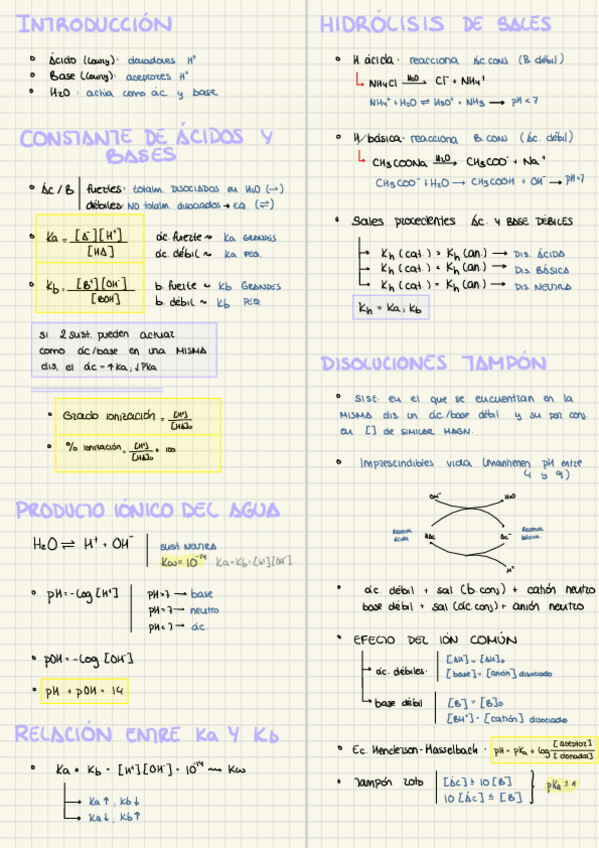 INTRODUCCIÓN
• Ácido (Lowry): donadores H⁺
• Base (Lowry): aceptores H⁺
• H₂O: actúa como ác. y base
CONSTANTE DE ÁCIDOS Y
BASES
• Ác/B | fuertes: totalm. DISOCIADOS en H₂O (→)
débiles: NO totalm. disociados → EQ. (⇌)
• Ka = [A⁻][H⁺] / [HA]
ác. fuerte ~ Ka GRANDES
ác. débil ~ Ka PEQ.
• Kb = [B⁺][OH⁻] / [BOH]
b. fuerte ~ Kb GRANDES
b. débil ~ Kb PEQ.
si 2 sust. pueden actuar
como ác/base en una MISMA
dis, el ác = ↑Ka, ↓PKa
• Grado ionización = [H⁺] / [HA]₀
• % ionización = [H⁺] / [HA]₀ · 100
PRODUCTO IÓNICO DEL AGUA
H₂O ⇌ H⁺ + OH⁻
sust NEUTRA
Kw = 10⁻¹⁴ Ka = Kb = [H⁺][OH⁻]
• pH = -Log [H⁺]
pH > 7 → base
pH = 7 → neutro
pH < 7 → ác.
• pOH = -Log [OH⁻]
• pH + pOH = 14
RELACIÓN ENTRE Ka Y Kb
• Ka · Kb = [H⁺][OH⁻] = 10⁻¹⁴ ~ Kw
→ Ka ↑, Kb ↓
→ Ka ↓, Kb ↑
HIDRÓLISIS DE SALES
• H ácida: reacciona Ác. cons (B. débil)
NH₄Cl —H₂O→ Cl⁻ + NH₄⁺
NH₄⁺ + H₂O ⇌ H₃O⁺ + NH₃ → pH < 7
• H/básica: reacciona B. cons (Ác. débil)
CH₃COONa —H₂O→ CH₃COO⁻ + Na⁺
CH₃COO⁻ + H₂O → CH₃COOH + OH⁻ → pH > 7
• Sales procedentes Ác. Y BASE DÉBILES
→ Kh (cat.) > Kh (an.) → DIS. ÁCIDA
→ Kh (cat.) < Kh (an.) → DIS. BÁSICA
→ Kh (cat.) = Kh (an.) → DIS. NEUTRA
Kh = Ka, Kb
DISOLUCIONES TAMPÓN
• Sist. en el que se encuentran en la
MISMA dis. un ác/base débil y su par conj.
en [] de SIMILAR MAGN.
• Imprescindibles vida (mantienen pH entre
4 y 9)
OH⁻ H₂O
Reserva ácida HAc Ac⁻ Reserva básica
H⁺
• ác. débil + sal (b. conj) + catión neutro
base débil + sal (ác conj) + anión neutro
• EFECTO DEL IÓN COMÚN
→ ác. débiles: [AH] = [AH]₀
[base] = [anión] disociado
→ base débil [B] = [B]₀
[BH⁺] = [catión] disociado
• Ec. Henderson-Hasselbach: pH = pKa + log [aceptor] / [donador]
• Tampón roto
[Ác] ≥ 10 [B]
10 [Ác] ≤ [B]
pKa ± 1